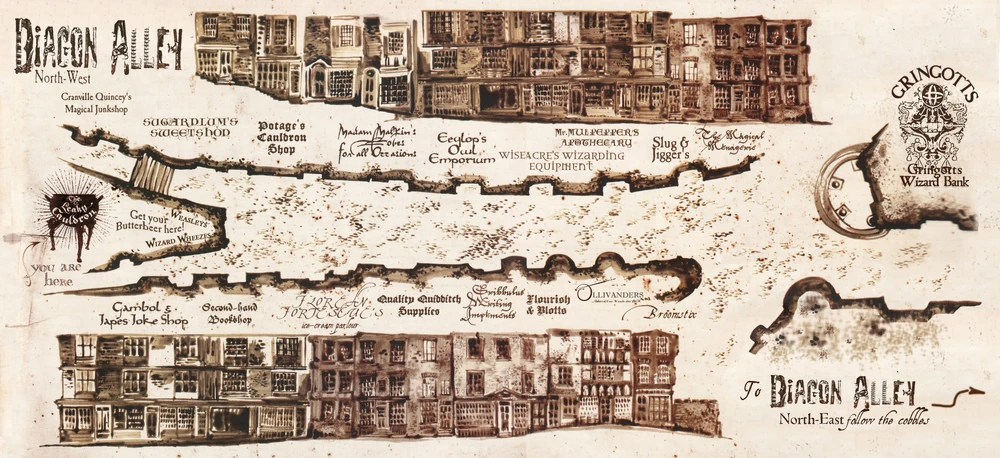 Diagon Alley
North-West
Cranville Quincey's
Magical Junkshop
Sugarplum's
Sweetshop
Potage's
Cauldron
Shop
Madam Malkin's
Robes
for all Occasions
Eeylop's
Owl
Emporium
Mr. Mulpepper's
Apothecary
Wiseacre's Wizarding
Equipment
Slug &
Jigger's
The Magical
Menagerie
Gringotts
Gringotts
Wizard Bank
The
Leaky
Cauldron
you are
here
Get your
Butterbeer here!
Weasleys'
Wizard Wheezes
Gambol &
Japes Joke Shop
Second-hand
Bookshop
Florean
Fortescue's
ice-cream parlour
Quality Quidditch
Supplies
Scribbulus
Writing
Implements
Flourish
& Blotts
Ollivanders
Broomstix
To Diagon Alley
North-East follow the cobbles